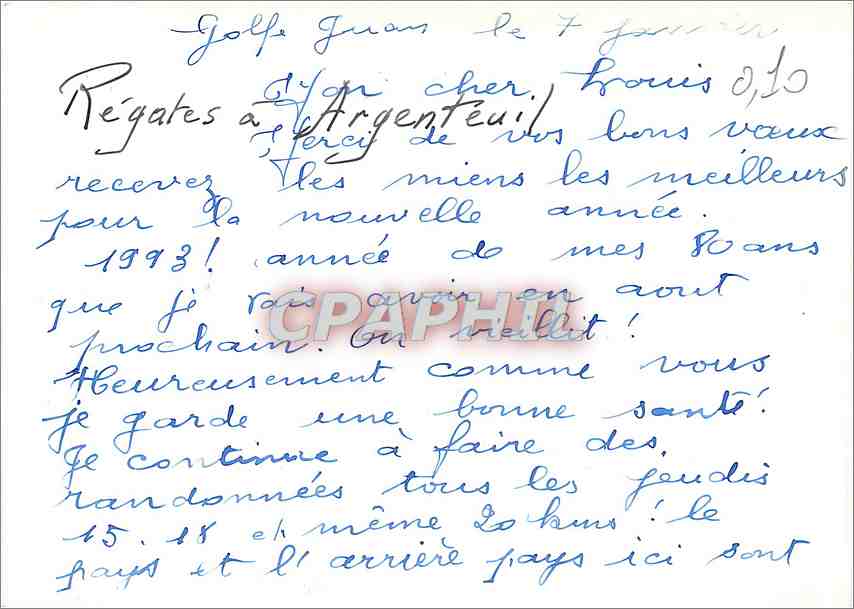 Golfe Juan le 7 janvier
Mon cher Louis 0,10
Régates à Argenteuil
Merci de vos bons vœux
recevez les miens les meilleurs
pour la nouvelle année.
1993! année de mes 80 ans
que je vais avoir en aout
prochain. On vieillit!
CPAPHIL
Heureusement comme vous
je garde une bonne santé!
Je continue à faire des
randonnées tous les jeudis
15. 18 et même 20 kms! le
pays et l'arrière pays ici sont